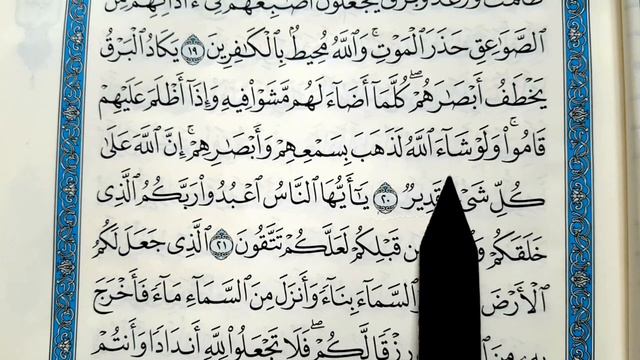 ظلمت ورعد وبرق يجعلون أصبعهم في ءاذانهم من
ٱلصَّوَٰعِقِ حَذَرَ ٱلْمَوْتِ ۚ وَٱللَّهُ مُحِيطٌۢ بِٱلْكَٰفِرِينَ ١٩ يَكَادُ ٱلْبَرْقُ
يَخْطَفُ أَبْصَٰرَهُمْ ۖ كُلَّمَآ أَضَآءَ لَهُم مَّشَوْا۟ فِيهِ وَإِذَآ أَظْلَمَ عَلَيْهِمْ
قَامُوا۟ ۚ وَلَوْ شَآءَ ٱللَّهُ لَذَهَبَ بِسَمْعِهِمْ وَأَبْصَٰرِهِمْ ۚ إِنَّ ٱللَّهَ عَلَىٰ
كُلِّ شَىْءٍ قَدِيرٌ ٢٠ يَٰٓأَيُّهَا ٱلنَّاسُ ٱعْبُدُوا۟ رَبَّكُمُ ٱلَّذِى
خَلَقَكُمْ قَبْلِكُمْ لَعَلَّكُمْ تَتَّقُونَ ٢١ ٱلَّذِى جَعَلَ لَكُمُ
ٱلْأَرْضَ وَٱلسَّمَآءَ بِنَآءً وَأَنزَلَ مِنَ ٱلسَّمَآءِ مَآءً فَأَخْرَجَ
رِزْقًا لَّكُمْ ۖ فَلَا تَجْعَلُوا۟ لِلَّهِ أَندَادًا وَأَنتُمْ